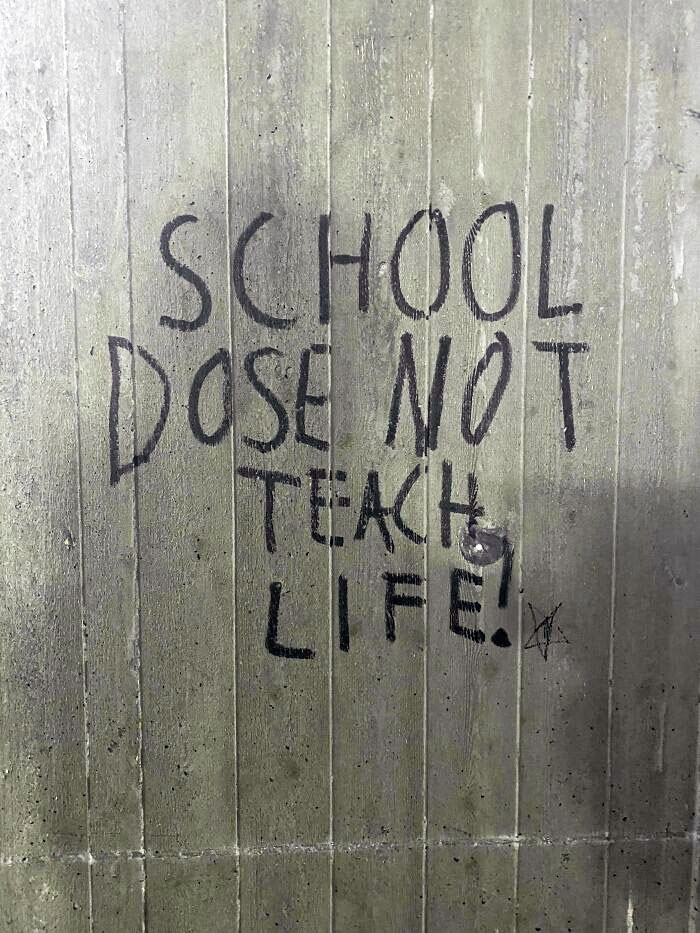 SCHOOL
DOSE NOT
TEACH
LIFE!